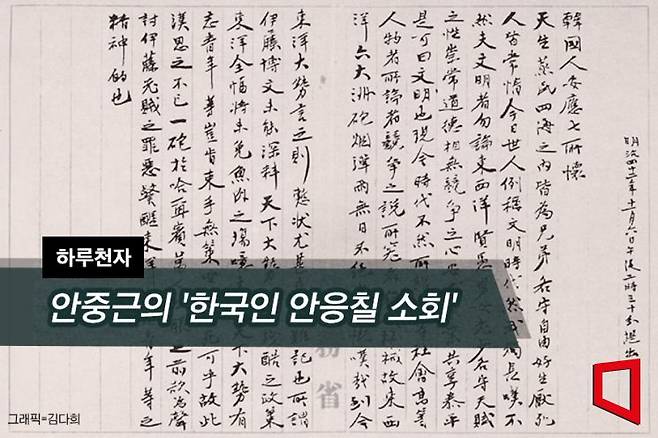 明治四十二年十一月六日午後二時三十分提出
韓國人安應七所懷
天生蒸民四海之內皆為兄弟各守自由好生厭死
人皆常情今日世人例稱文明時代然我獨長嘆不
然夫文明者勿論東西洋賢愚男女老少各守天賦
之性崇常道德相無競爭之心 共享泰平
是可曰文明也現今時代不然所 社會高等
人物者所論者競爭之說所究 械故東西
洋六大洲砲烟彈雨無日不 嘆哉到今
東洋大勢言之則慙狀尤甚 記也所謂
伊藤博文未能深料天下大 酷之政策
東洋全幅將未免魚肉之場 下大勢有
志青年等豈肯束手無策 可乎故此
漢思之不已一砲於哈爾賓萬人 之前欲為聲
討伊藤老賊之罪惡警醒東 青年等之
精神的也
務省
하루천자
안중근의 '한국인 안응칠 소회'
그래픽=김다희